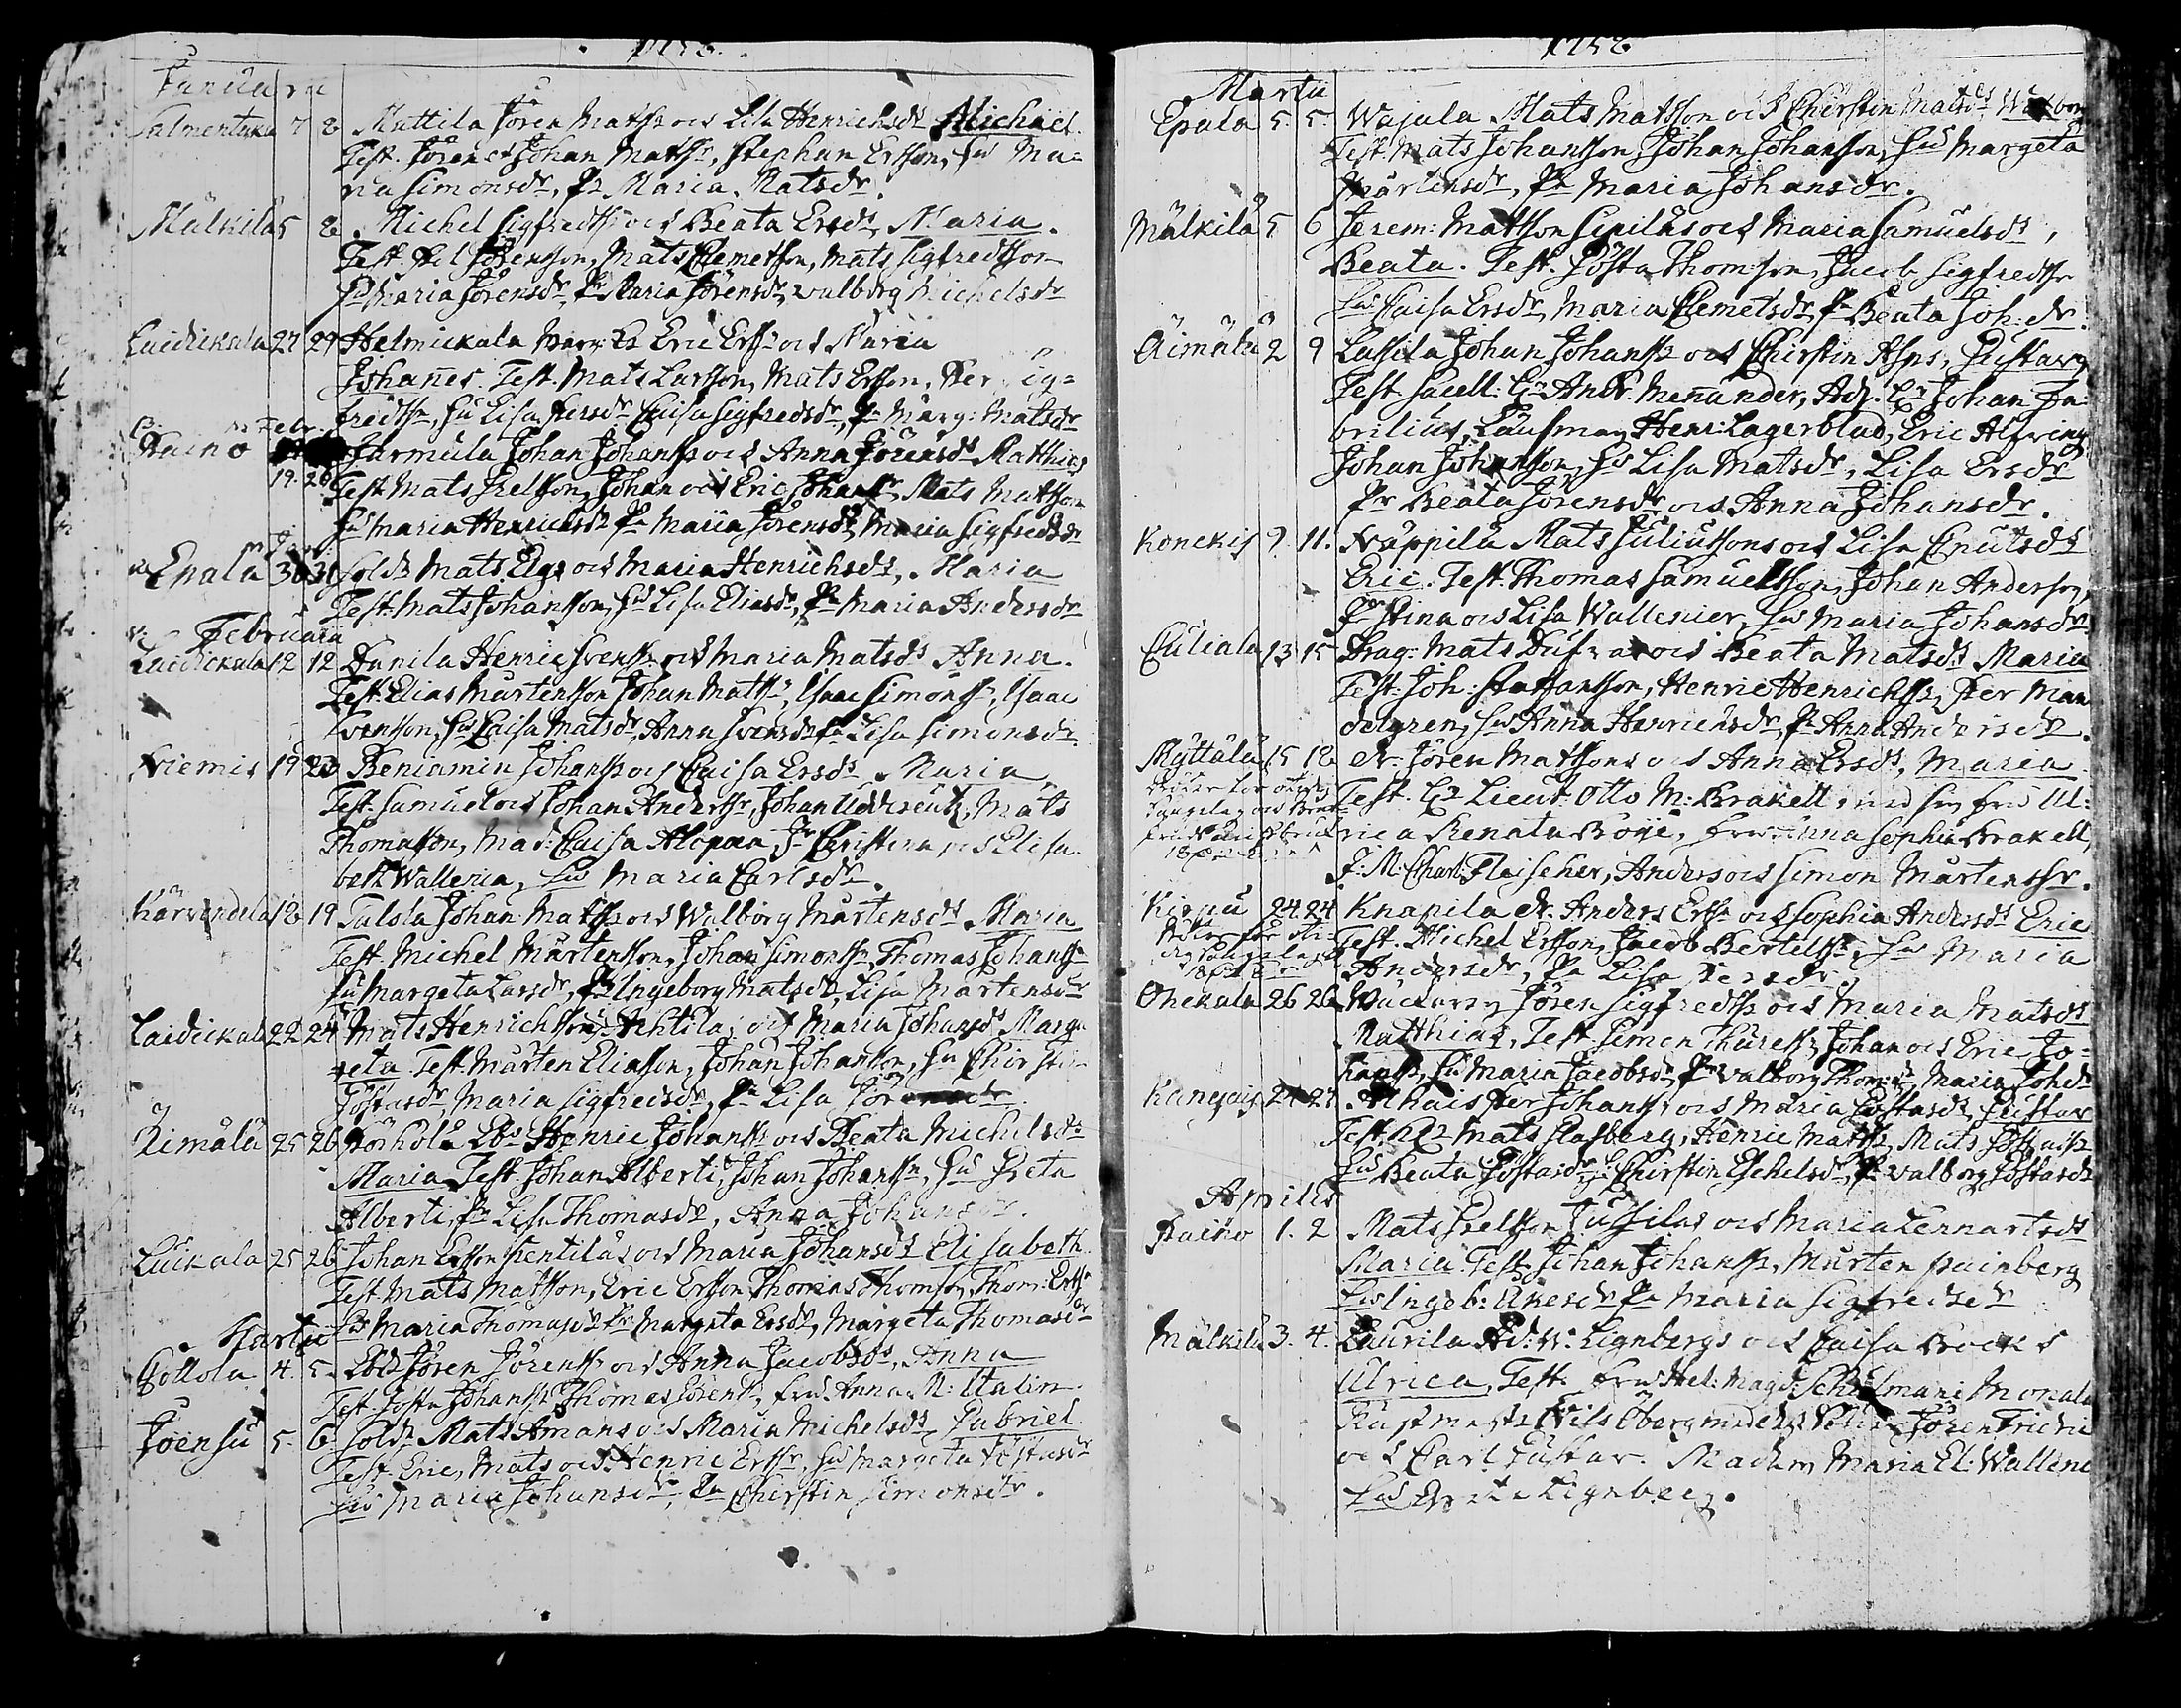 1758.
Januarii
Salmentaka 7 8 Mattila Jören Matss och Lisa Henrichsdr Michael.
Test. Jören et Johan Matssr, Stephan Ersson, Hu Ma=
ria Simonsdr, Pr Maria Matsdr.
Mälkilä 5 8 Michel Sigfredss och Beata Ersdr, Maria.
Test. Jörensson, Mats Clemetson, Mats Sigfredsson
Hu Maria Jörensdr, Pr Maria Jörensdr, Walborg Michelsdr
Laidickala 27 29 Helmickala Eric Erss och Maria
Johannes. Test. Mats Larsson, Mats Ersson, Per Sig=
fredssr, Hu Lisa Persdr Caisa Sigfredsdr, Pr Marg: Matsdr
Febr.
Paino 19. 20 Jarmula Johan Johanss och Anna Jörensdr Matthias
Test Mats Kelsson, Johan och Eric Johanssr, Mats Matsson
Hu Maria Henrichsdr Pr Maria Jörensdr, Maria Sigfredsdr
Enala 30 31 Soldr Mats Elgs och Maria Henrichsdr, Maria
Test. Mats Johansson, Hu Lisa Eliasdr, Pr Maria Andersdr
Februarii
Laidickala 12 12 Danila Henric Svenss och Maria Matsdr Anna.
Test. Elias Mårtensson Johan Matssr, Isaac Simonss, Isaac
Svensson, Hu Caisa Matsdr, Anna Svensdr Pr Lisa Simonsdr
Niemis 19 20 Beniamin Johanss och Caisa Ersdr Maria.
Test. Samuel och Johan Anderssr, Johan Uddereutz, Mats
Thomasson, Mad: Caisa Alopaea, Jr Christina och Elisa
beth Walleria, Hu Maria Carlsdr.
Karvendela 18 19 Talola Johan Matss och Walborg Mårtensdr Maria
Test. Michel Mårtensson, Johan Simonss, Thomas Johanss
Hu Margeta Larsdr, Pr Ingeborg Matsdr, Lisa Mårtensdr
Laidickala 22 24 Mats Henrichsson Achtila, och Maria Johansdr Marga
reta Test. Mårten Eliasson, Johan Johansson, Hu Chirstin
Göstasdr Maria Sigfredsdr, Pr Lisa
Äimälä 25 26 Hörhölä Henric Johanss och Beata Michelsdr
Maria Test. Johan Alberti, Johan Johanssr, Hu Greta
Alberti, Pr Lisa Thomasdr, Anna Johansdr.
Luckala 25 26 Johan Ersson Pentilas och Maria Johansdr Elisabeth
Test. Mats Matsson, Eric Ersson Thomas Thomson, Thom: Erss
Hu Maria Thomasdr Pr Margeta Ersdr, Margeta Thomasdr
Martii
Gottola 4. 5. Jören Jörenss och Anna Jacobsdr, Anna
Test. Gösta Johanss Thomas Jörenss, fru Anna M: Stalin
Joensu 5. 6. Soldr Mats Amans och Maria Michelsdr Gabriel.
Test. Eric, Mats och Henric Erssr, Hu Margeta Göstasdr
Hu Maria Johansdr, Pr Chirstin Simonsdr.
1758
Martii
Epala 5. 5. Wajula Mats Matsson och Chirstin Matsdr Walborg
Test. Mats Johansson, Johan Johansson, Hu Margeta
Mårtensdr, Pr Maria Johansdr.
Mälkilä 5 6 Jerem: Matsson Sipiläs och Maria Samuelsdr,
Beata. Test. Gösta Thomson, Jacob Sigfredssr
Hu Caisa Ersdr, Maria Clemetsdr, Pr Beata Joh: dr.
Äimälä 2 9 Lassila Johan Johanss och Chirstin Asps, Gustav,
Test. Sacell: Hr Andr. Menander, Adj. Hr Johan Fa=
bricius, Länsman Henr: Lagerblad, Eric Alfving
Johan Johansson, Hu Lisa Matsdr, Lisa Ersdr
Pr Beata Jörensdr och Anna Johansdr.
Konckis 9. 11. Näppilä Mats Juliussons och Lisa Cnutsdr
Eric. Test. Thomas Samuelsson, Johan Anderson,
Jr Stina och Lisa Wallenier, Hu Maria Johansdr
Culiala 13 15 Drag: Mats Dufva och Beata Matsdr Maria
Test. Joh: Staffansson, Henric Henrichss, Per Man
delgren, Hu Anna Henrichsdr, Pr Anna Andersdr.
Myttälä 15 18 N. Jören Matssons och Anna Ersdr, Maria
Test. Hr Lieut: Otto M: Brakell, med sin fru Ul:
rica Renata Böije, Anna Sophia Brakell,
J: M: Charl: Fleischer, Anders och Simon Mårtenssr.
Kirpu 24 24 Knapila N. Anders Erss och Sophia Andersdr Eric
Test. Michel Ersson, Jacob Bertilss, Hu Maria
Andersdr, Pr Lisa Persdr
Ohekala 26 26 Jören Sigfredss och Maria Matsdr
Matthias, Test. Simon Thuress, Johan och Eric Jo=
hanss, Hu Maria Jacobsdr, Pr Walborg Thom: dr, Maria Johdr
Kangais 24 27 Alhais Per Johanss och Maria Göstasdr, Gustav
Test. Mats Flasberg, Henric Matss, Mats
Hu Beata Göstasdr, Chirstin Eschelsdr, Pr Walborg Göstasdr
Aprilis
Paino 1. 2 Mats Kelsson Jussilas och Maria Lennartsdr
Maria. Test. Johan Johanss, Mårten Painberg
Hu Ingeb: Åkesdr Pr Maria Sigfredsdr
Mälkilä 3. 4. Laurila Ad: W: Lignbergs och Caisa Brocks
Ulrica, Test. fru Hel: Magd: Schulman
Rustmest Nils Öberg Jören Fridric
och Carl Gustav. Madam Maria El: Walleni
Hu Lignberg.